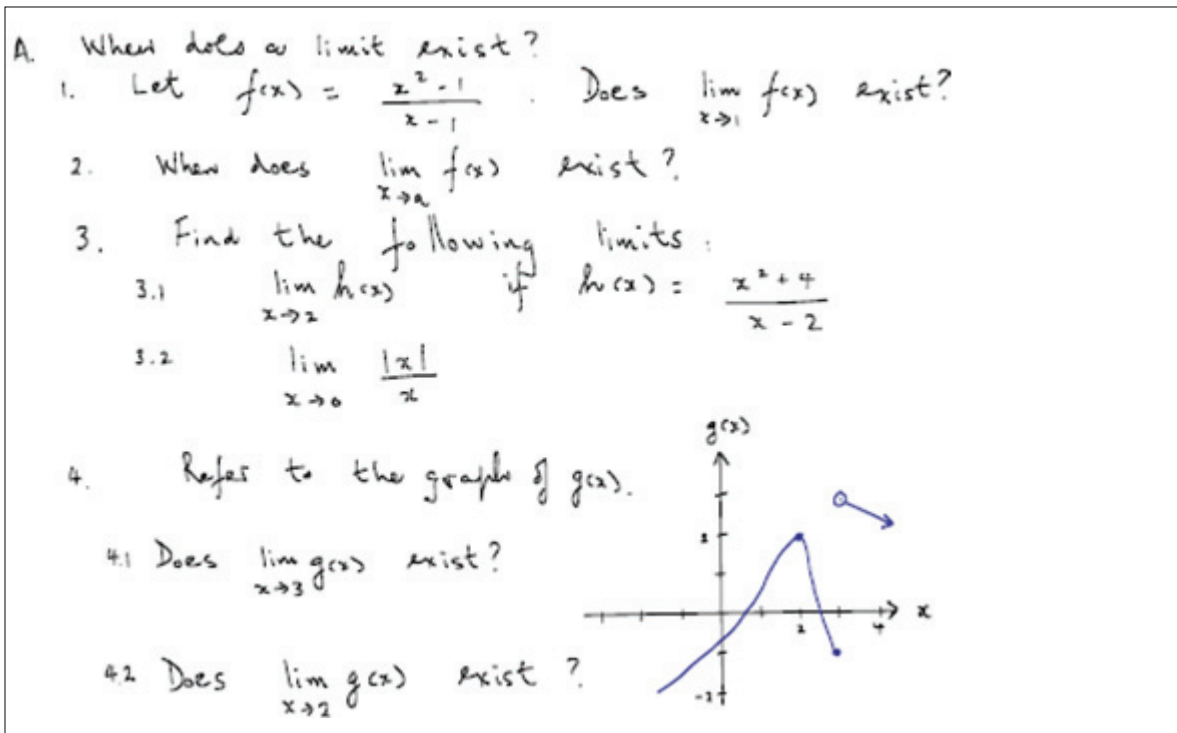 A. When does a limit exist?
1. Let f(x) = (x² - 1)/(x - 1). Does lim x→1 f(x) exist?
2. When does lim x→a f(x) exist?
3. Find the following limits:
3.1 lim x→2 h(x) if h(x) = (x² + 4)/(x - 2)
3.2 lim x→0 |x|/x
4. Refer to the graph of g(x).
4.1 Does lim x→3 g(x) exist?
4.2 Does lim x→2 g(x) exist?
g(x)
2
x
2 4
-2